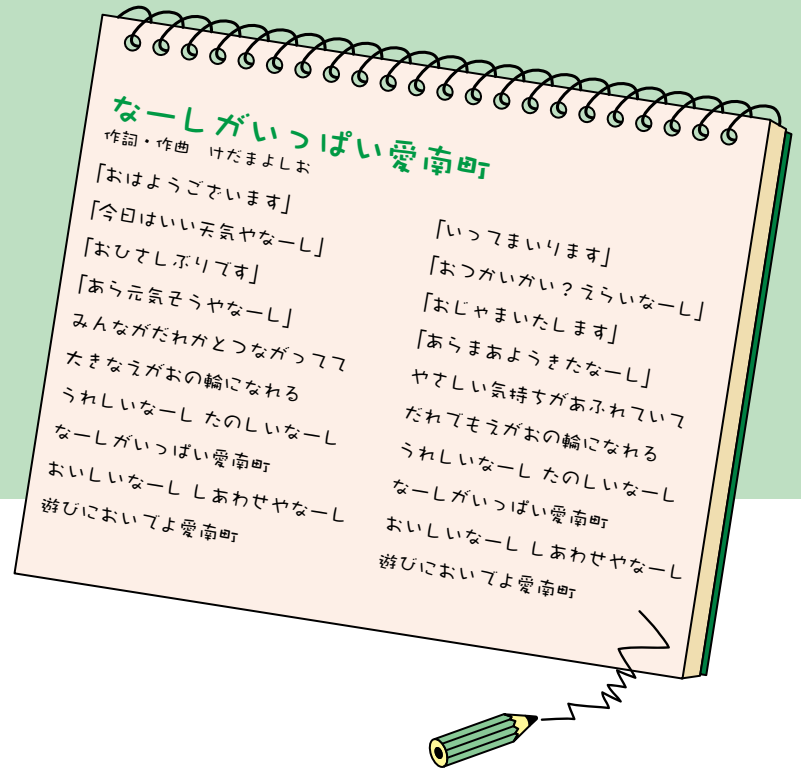 なーしがいっぱい愛南町
作詞・作曲　けだまよしお
「おはようございます」
「今日はいい天気やなーし」
「おひさしぶりです」
「あら元気そうやなーし」
みんながだれかとつながってて
大きなえがおの輪になれる
うれしいなーし たのしいなーし
なーしがいっぱい愛南町
おいしいなーし しあわせやなーし
遊びにおいでよ愛南町
「いってまいります」
「おつかいかい？えらいなーし」
「おじゃまいたします」
「あらまあようきたなーし」
やさしい気持ちがあふれていて
だれでもえがおの輪になれる
うれしいなーし たのしいなーし
なーしがいっぱい愛南町
おいしいなーし しあわせやなーし
遊びにおいでよ愛南町